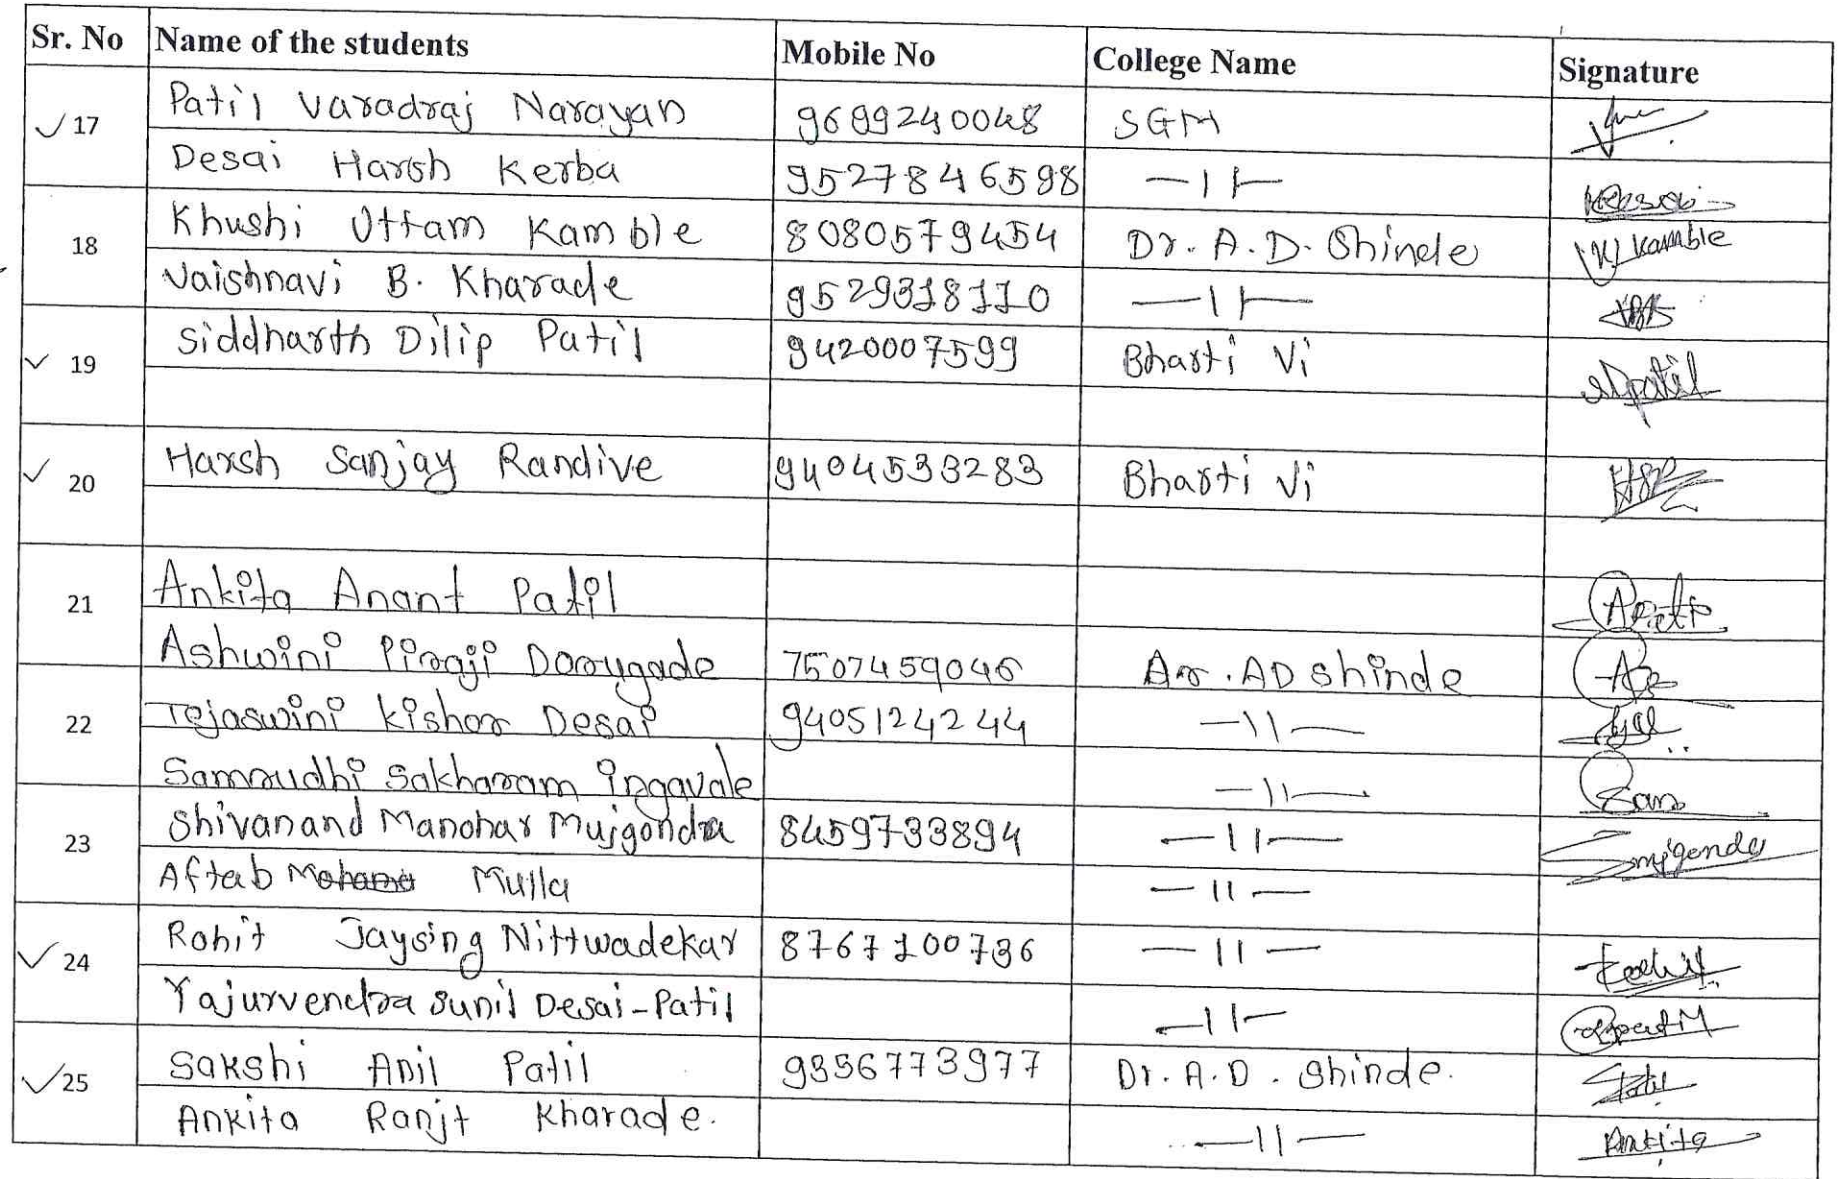 Sr. No Name of the students Mobile No College Name Signature
17 Patil Varadraj Narayan 9699240048 SGM
Desai Harsh Kerba 9527846598 —11—
18 Khushi Uttam Kamble 8080579454 Dr. A. D. Shinde Kamble
Vaishnavi B. Kharade 9529318110 —11—
19 Siddharth Dilip Patil 9420007599 Bharti Vi SDpatil
20 Harsh Sanjay Randive 9404533283 Bharti Vi HSR
21 Ankita Anant Patil
Ashwini Piraji Dorugade 7507459046 Dr. AD Shinde
22 Tejaswini Kishor Desai 9405124244 —11—
Samrudhi Sakharam Ingavale —11— Sam
23 Shivanand Manohar Mujgonda 8459733894 —11— Smjgonda
Aftab Mulla —11—
24 Rohit Jaysing Nittwadekar 8767100736 —11— Rohit
Yajurvendra Sunil Desai-Patil —11—
25 Sakshi Anil Patil 9356773977 Dr. A.D. Shinde.
Ankita Ranjt Kharade. —11— Ankita